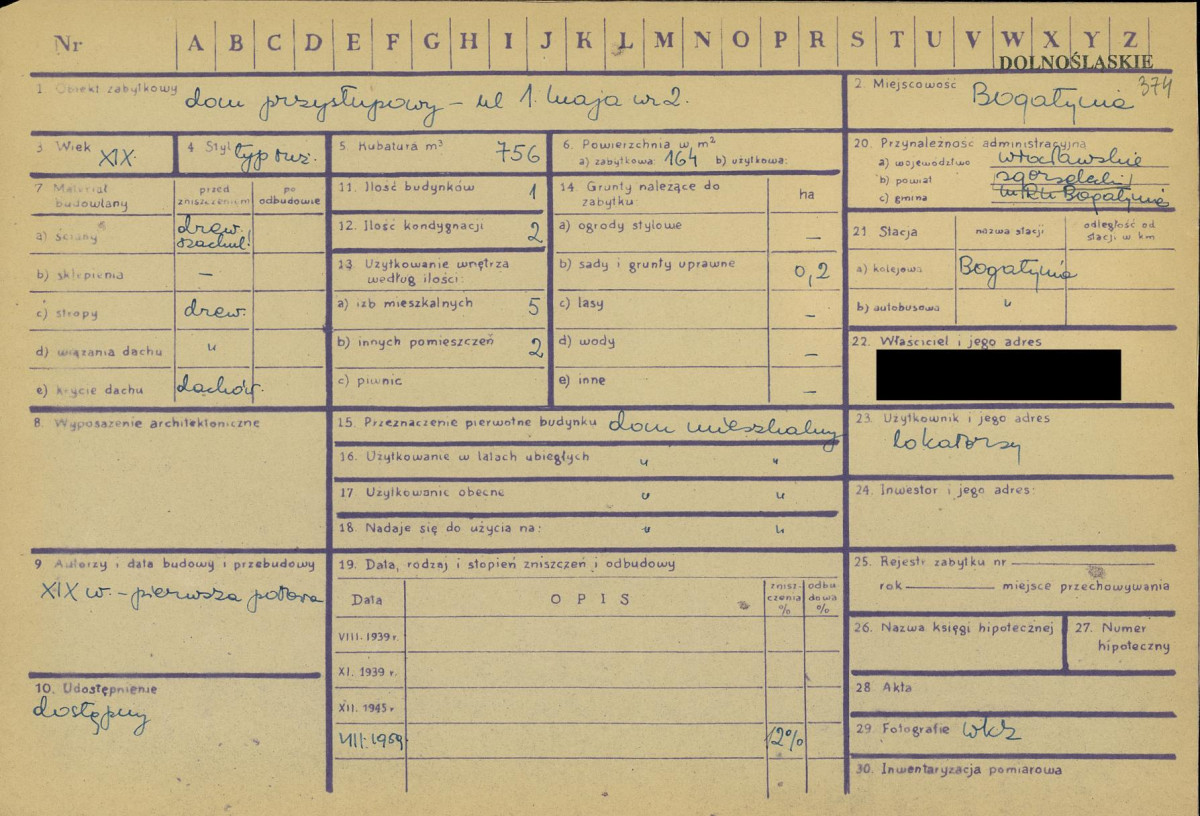 Nr A B C D E F G H I J K L M N O P R S T U V W X Y Z
DOLNOŚLĄSKIE
374
1. Obiekt zabytkowy dom przysłupowy – ul 1. Maja nr 2.
2. Miejscowość Bogatynia
3 Wiek XIX.
4 Styl typ
5. Kubatura m³ 756
6. Powierzchnia w m²
a) zabytkowa: 164 b) użytkowa:
7 Materiał budowlany
przed zniszczeniem
po odbudowie
a) ściany drew. szachul.
b) sklepienia –
c) stropy drew.
d) wiązania dachu "
e) krycie dachu dachów.
8. Wyposażenie architektoniczne
9 Autorzy i data budowy i przebudowy
XIX w. – pierwsza połowa
10. Udostępnienie
dostępny
11. Ilość budynków 1
12. Ilość kondygnacji 2
13 Użytkowanie wnętrza
według ilości:
a) izb mieszkalnych 5
b) innych pomieszczeń 2
c) piwnic
14. Grunty należące do
zabytku:
ha
a) ogrody stylowe –
b) sady i grunty uprawne 0,2
c) lasy –
d) wody –
e) inne –
15. Przeznaczenie pierwotne budynku dom mieszkalny
16. Użytkowanie w latach ubiegłych " "
17 Użytkowanie obecne " "
18. Nadaje się do użycia na: " "
19. Data, rodzaj i stopień zniszczeń i odbudowy
Data
OPIS
znisz-
czenia
%
odbu
dowa
%
VIII. 1939 r.
XI. 1939 r.
XII. 1945 r.
VIII. 1959 12%
20. Przynależność administracyjna
a) województwo wrocławskie
b) powiat zgorzelecki
c) gmina Bogatynia
21 Stacja
nazwa stacji
odległość od
stacji w km
a) kolejowa Bogatynia
b) autobusowa "
22. Właściciel i jego adres
23. Użytkownik i jego adres
lokatorzy
24. Inwestor i jego adres:
25. Rejestr zabytku nr
rok miejsce przechowywania
26. Nazwa księgi hipotecznej
27. Numer
hipoteczny
28 Akta
29. Fotografie WKZ
30. Inwentaryzacja pomiarowa